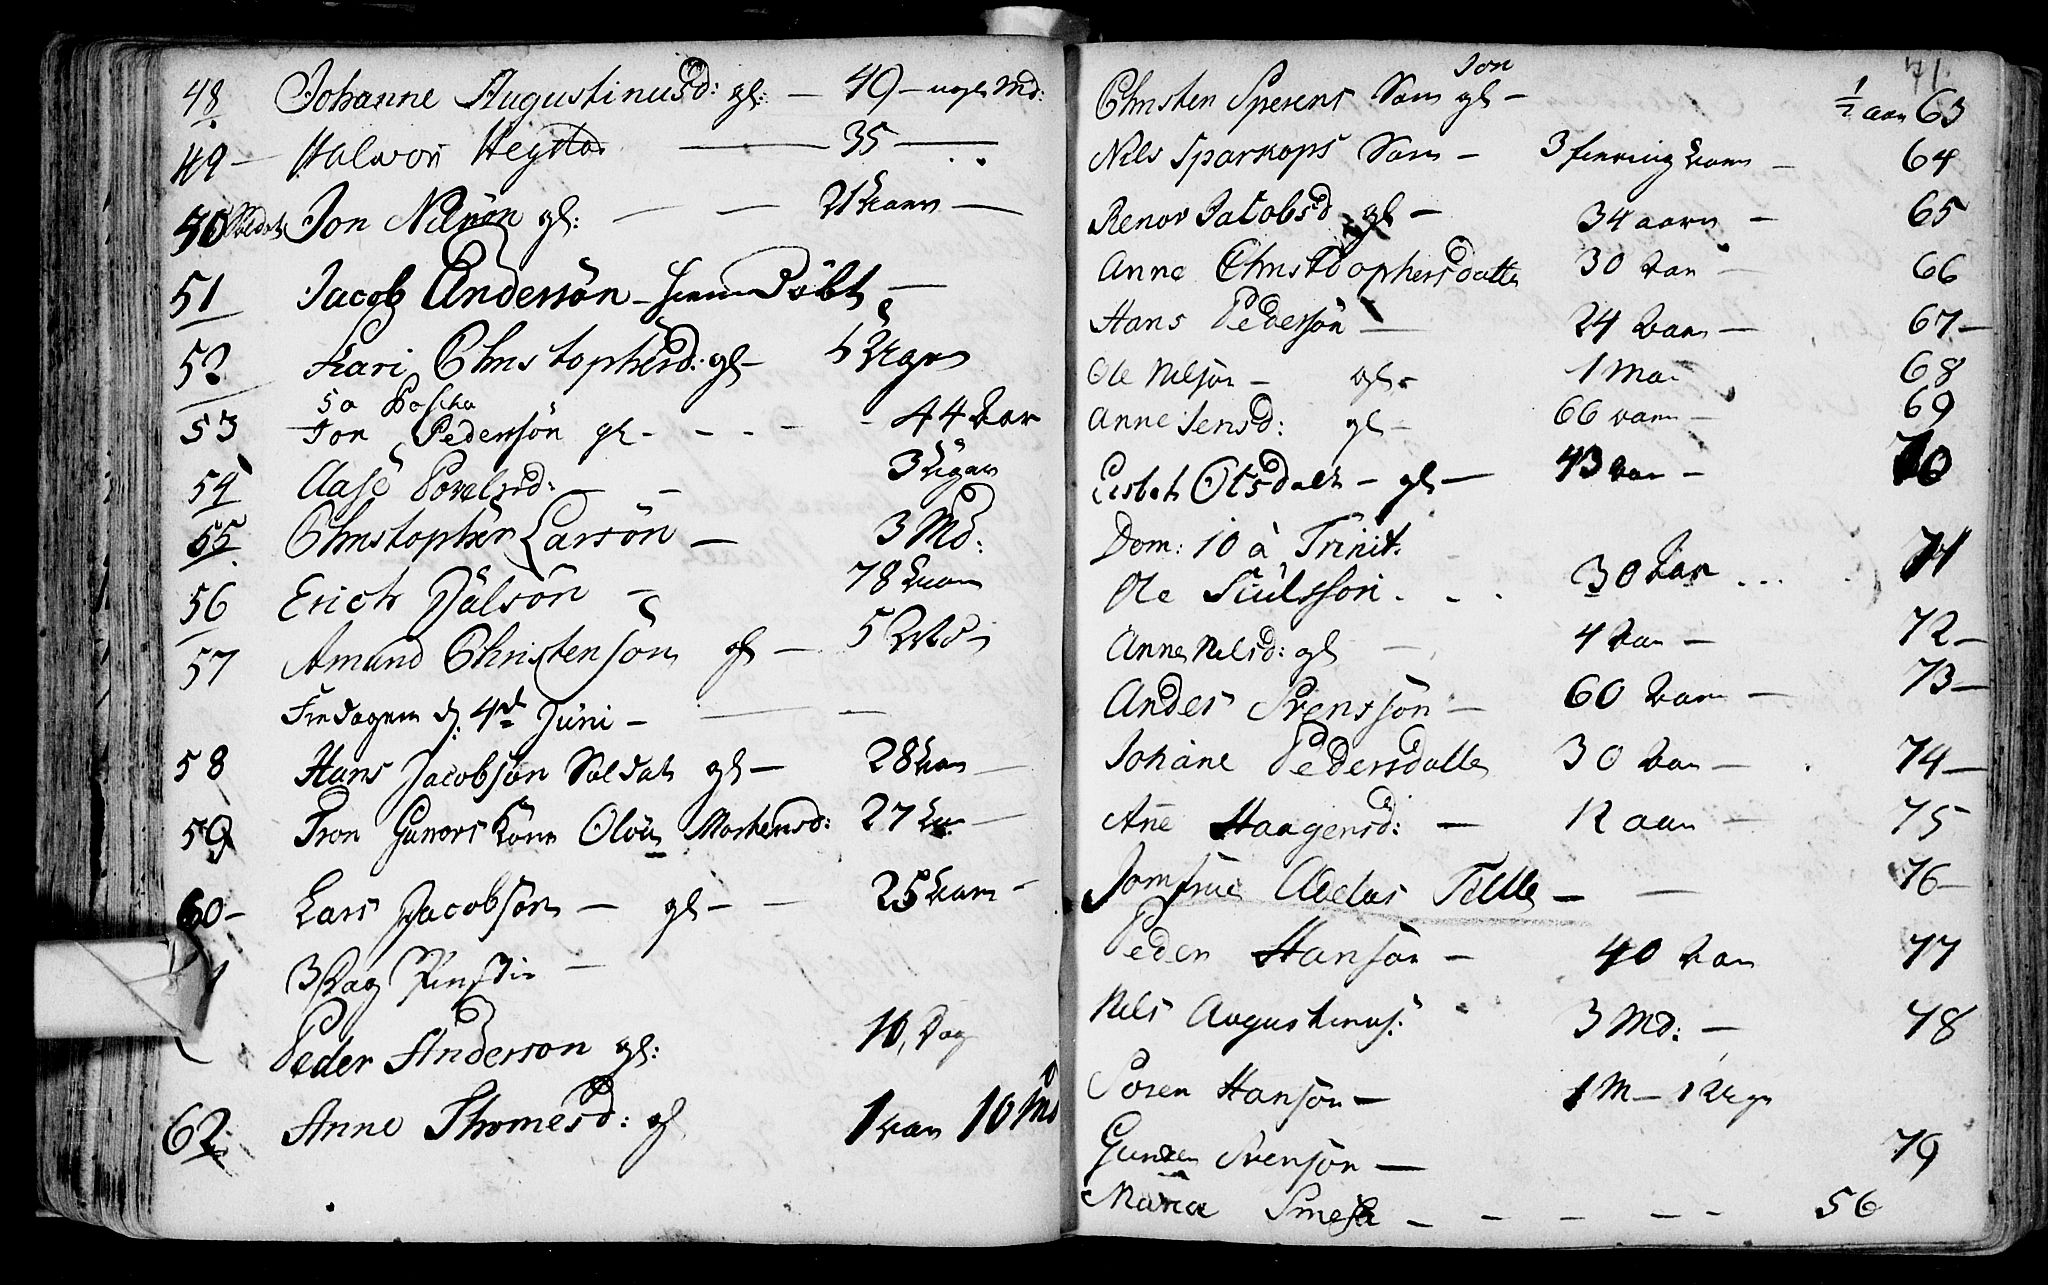 48 Johanne Augustinusd: gl: — 49 — Md:
49 — Halvor — 35 —
50 Soldat Jon Nilsøn gl: — — 21 Aar —
51 Jacob Andersøn — hiemDøbt —
52 Kari Christophersd: gl — Uger
5a Pascha
53 Jon Pedersøn gl - - - - 44 Aar
54 Aase Povelsd: — — 3 Uger
55. Christopher Larsøn — 3 Md:
56 Erich Pålsøn — 78 Aar
57 Amund Christensøn gl — 5 Md:
Fredagen d: 4de Juni — —
58 Hans Jacobsøn Soldat gl — 28 Aar —
59 Tron Gunners Kone Olou Mortensd: 27 —
60 — Lars Jacobsøn — gl — - 25 Aar —
3 Dag Pinstie —
Peder Anderson gl: 10, Dag
62. Anne Thomesd: gl 1 Aar 10 Md
71.
Christen Spesens Søn Jon gl — ½ aar 63
Nils Sparkops Søn — 3 — 64
Renov Jacobsd gl — 34 aar — 65
Anne Christophersdatter 30 Aar — 66
Hans Pedersøn — 24 Aar — 67 —
Ole Nelsøn — gl. 1 Maa 68
Anne Jensd: gl — 66 aar — 69
Lisbet Olsdatr — gl — 43 Aar — 70
Dom: 10 à Trinit.
Ole Siulsson. - . 30 Aar . . . . 71
Anne Nelsd: gl — 4 Aar — 72 —
Ander Svensson — 60 Aar — 73 —
Johane Pedersdatter 30 Aar — . 74 —
Añe Haagensd: — 12 aar — 75
Jomfrue Adelus Telle — — 76 —
Peder Hansøn — 40 Aar 77
Nels Augustinus: 3 Md: — 78
Soren Hansøn — 1 M — 1 Uge
Gunder Svensøn — 79
Maria Smeja — — — — — 56